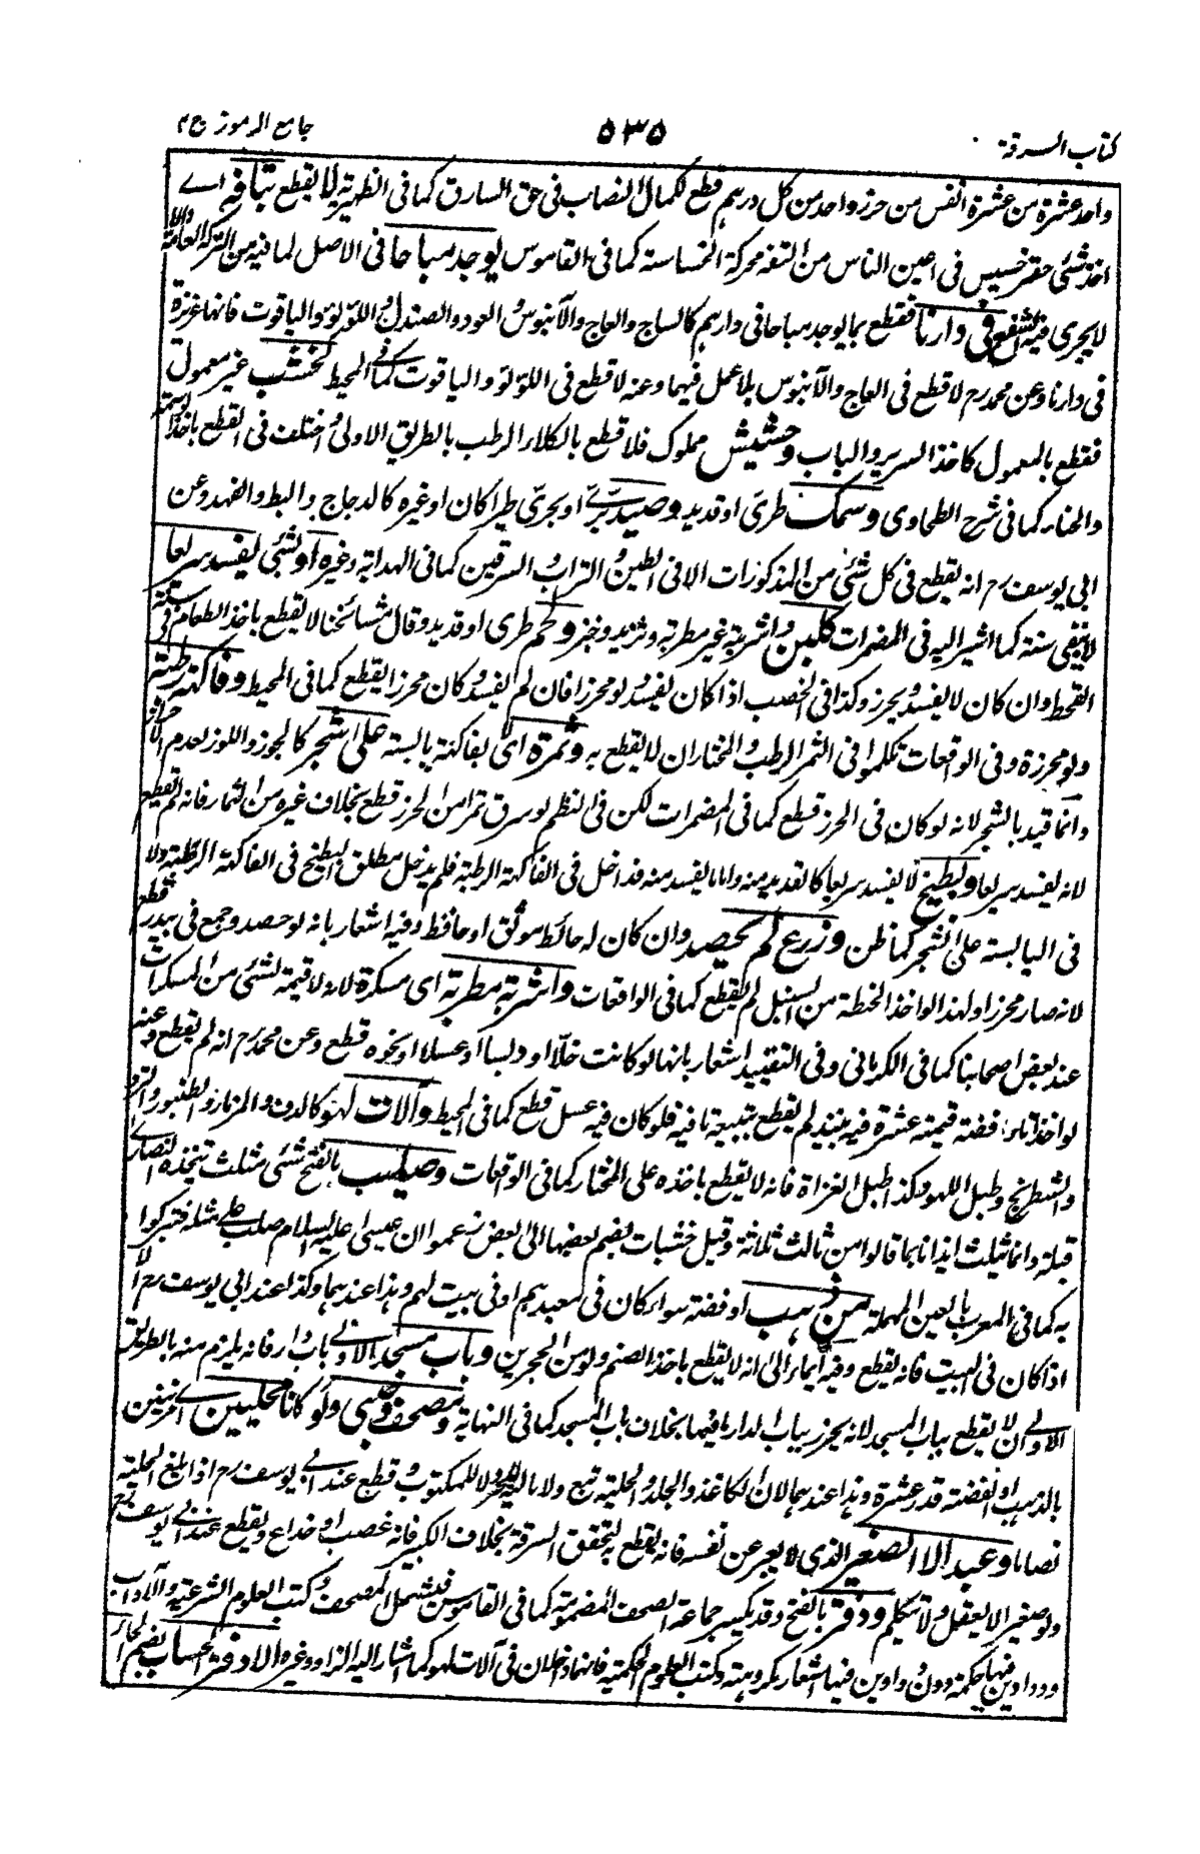 كتاب السرقة
٥٣٥
جامع الرموز ج ٢
واحد عشرة من عشرة انفس من حرز واحد من كل درهم قطع لكمال النصاب فى حق السارق كما فى الظهيرية لا يقطع بتافه اے
اخذ شئى حقير خسيس فى اعين الناس من التفه محركة الخساسة كما فى القاموس يوجد مباحا فى الاصل لما فيه من الشركة العامة
لا يجرى فيه الشح فى دارنا فقطع بما يوجد مباحا فى دارهم كالساج والعاج والآبنوس والعود والصندل واللؤلؤ والياقوت فانها عزيزة
فى دارنا وعن محمد رح لا قطع فى العاج والآبنوس بلا عمل فيهما وعنه لا قطع فى اللؤلؤ والياقوت كما فى المحيط كخشب غير معمول
فقطع بالمعمول كاخذ السرير والباب وحشيش مملوك فلا قطع بالكلاء الرطب بالطريق الاولى واختلف فى القطع باخذ الوسمة
والحناء كما فى شرح الطحاوى وسمك طرى او قديد وصيد برى او بحرى طيرا كان او غيره كالدجاج والبط والفهد وعن
ابى يوسف رح انه يقطع فى كل شئى من المذكورات الا فى الطين والتراب والسرقين كما فى الهداية وغيره او شئى يفسد سريعا
لا يبقى سنة كما اشير اليه فى المضمرات كلبن واشربة غير مطربة وثريد وخبز ولحم طرى او قديد وقال مشائخنا لا يقطع باخذ الطعام فى سنة
القحط وان كان لا يفسد ويحرز وكذا فى الخصب اذا كان يفسد ولو محرزا فان لم يفسد وكان محرزا يقطع كما فى المحيط وفاكهة رطبة
ولو محرزة وفى الواقعات تكلموا فى الثمر الرطب والمختار ان لا يقطع به وثمرة اى بفاكهة يابسة على الشجر كالجوز واللوز لعدم الاحراز
وانما قيد بالشجر لانه لو كان فى الحرز قطع كما فى المضمرات لكن فى النظم لو سرق تمرا من الحرز قطع بخلاف غيره من الثمار فانه لم يقطع
لانه يفسد سريعا وبطيخ لا يفسد سريعا كالقديد منه واما ما يفسد منه فداخل فى الفاكهة الرطبة فلم يدخل مطلق البطيخ فى الفاكهة الرطبة ولا
فى اليابسة على الشجر كما ظن وزرع لم يحصد وان كان له حائط موثق او حافظ وفيه اشعار بانه لو حصد وجمع فى بيدر قطع
لانه صار محرزا ولهذا لو اخذ الحنطة من السنبل لم يقطع كما فى الواقعات واشربة مطربة اى مسكرة لانه لا قيمة لشئى من المسكرات
عند بعض اصحابنا كما فى الكرمانى وفى التقييد اشعار بانها لو كانت خلا او دبسا او عسلا او نحوه قطع وعن محمد رح انه لم يقطع وعنه
لو اخذ اناء فضة قيمته عشرة فيه نبيذ لم يقطع بتبعية ما فيه فلو كان فيه عسل قطع كما فى المحيط وآلات لهو كالدف والمزمار والطنبور والنرد
والشطرنج وطبل اللهو وكذا طبل الغزاة فانه لا يقطع باخذه على المختار كما فى الواقعات وصليب بالفتح شئى مثلث تتخذه النصارى
قبلة وانما ثلث ايذانا بما قالوا من ثالث ثلاثة وقيل خشبات يضم بعضها الى بعض زعموا ان عيسى عليه السلام صلب على مثله فتبركوا
به كما فى المعرب بالعين المهملة من ذهب او فضة سواء كان فى معبدهم او فى بيت لهم وهذا عندهما وكذا عند ابى يوسف رح الا
اذا كان فى البيت فانه يقطع وفيه ايماء الى انه لا يقطع باخذ الصنم ولو من الحجرين وباب مسجد الاولى باب دار فانه يلزم منه بالطريق
الاولى ان لا يقطع بباب المسجد لانه يحرز بباب الدار ما فيها بخلاف باب المسجد كما فى النهاية ومصحف وصبى ولو كانا محليين اے مزينين
بالذهب او الفضة قدر عشرة وهذا عندهما لان الكاغذ والجلد والحلية تبع ولا مالية للحر ولا للمكتوب وقطع عند ابى يوسف رح اذا بلغ الحلية
نصابا وعبد الا الصغير الذى لا يعبر عن نفسه فانه يقطع به لتحقق السرقة بخلاف الكبير فانه غصب او خداع ولا يقطع عند ابى يوسف رح
ولو صغيرا لا يعقل ولا يتكلم ودفتر بالفتح وقد يكسر جماعة الصحف المضمومة كما فى القاموس فيشمل المصحف وكتب العلوم الشرعية والآداب
ودواوين فيها حكمة دون دواوين فيها اشعار مكروهة وكتب العلوم الحكمية فانهما داخلان فى آلات لهو كما اشار اليه الزاد وغيره الا دفتر الحساب بضم الحاء